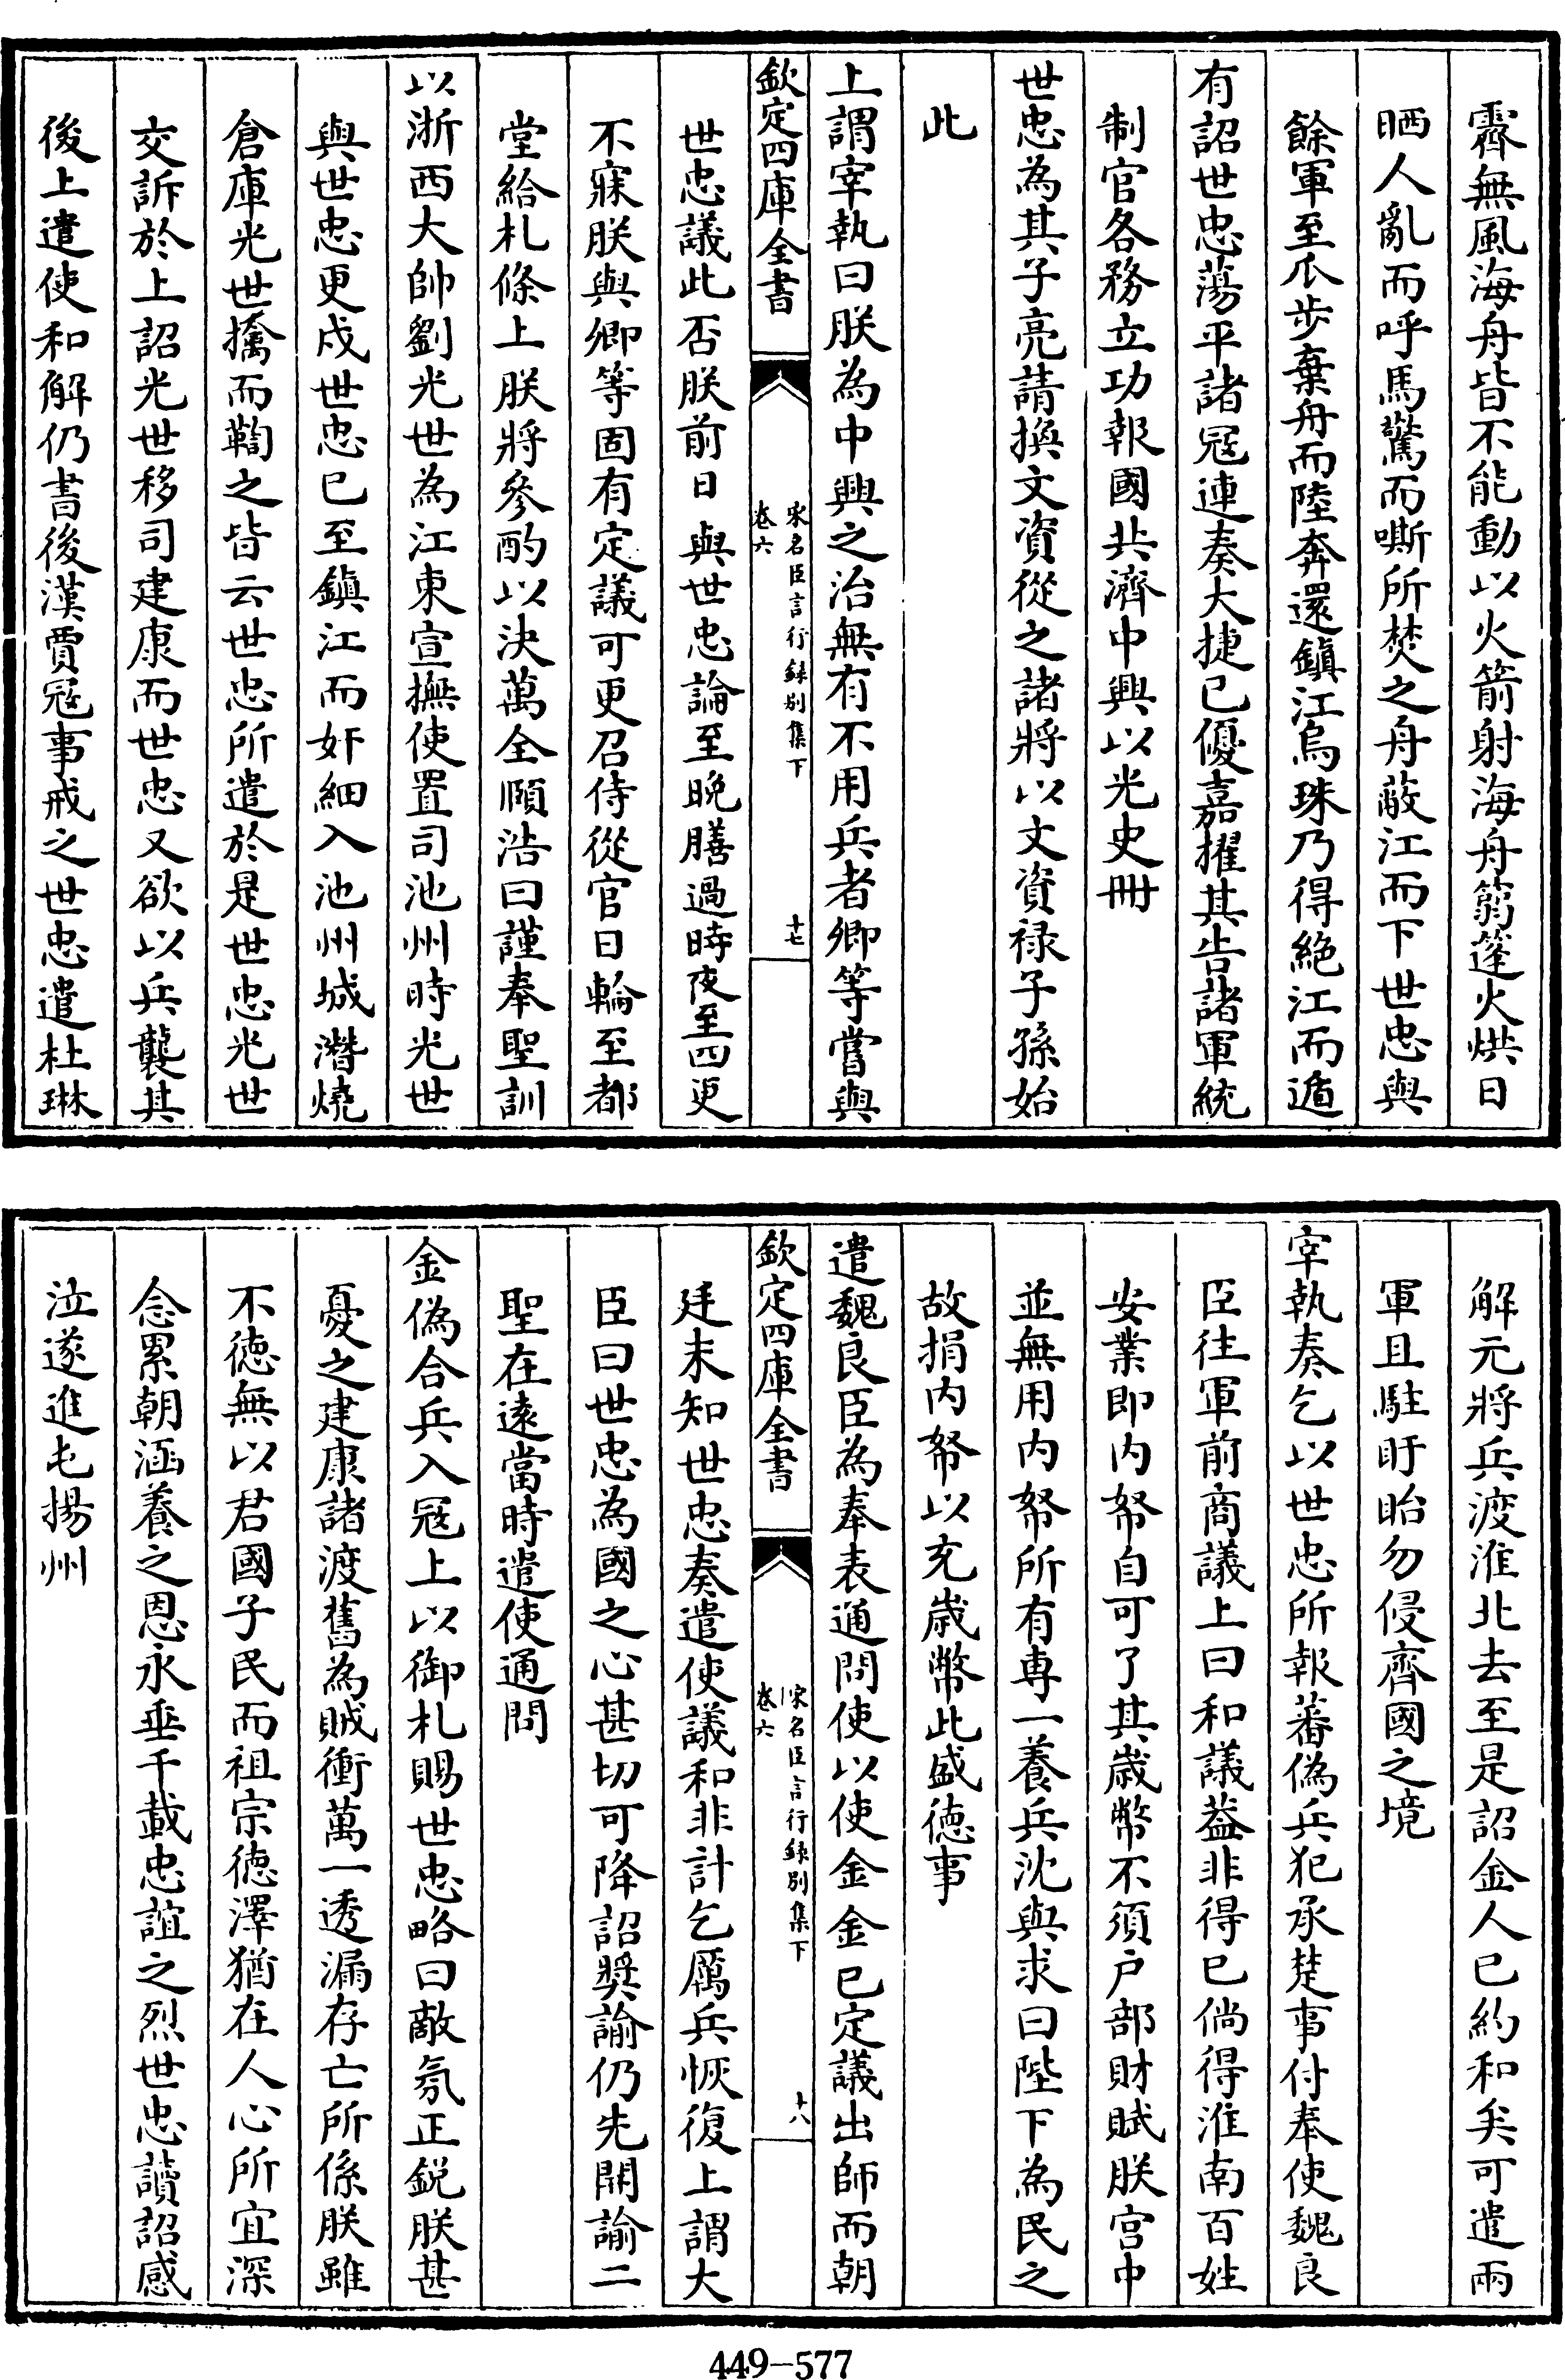 霽無風海舟皆不能動以火箭射海舟篛篷火烘日
晒人亂而呼馬驚而嘶所焚之舟蔽江而下世忠與
餘軍至瓜步棄舟而陸奔還鎮江烏珠乃得絶江而遁
有詔世忠蕩平諸冦連奏大捷已優嘉擢其告諸軍統
制官各務立功報國共濟中興以光史冊
世忠為其子亮請換文資從之諸將以文資禄子孫始
此
上謂宰執曰朕為中興之治無有不用兵者卿等嘗與
欽定四庫全書
宋名臣言行録别集下
卷六
十七
世忠議此否朕前日與世忠論至晚膳過時夜至四更
不寐朕與卿等固有定議可更召侍從官日輪至都
堂給札條上朕將參酌以決萬全頤浩曰謹奉聖訓
以浙西大帥劉光世為江東宣撫使置司池州時光世
與世忠更戍世忠已至鎮江而奸細入池州城潛燒
倉庫光世擒而鞫之皆云世忠所遣於是世忠光世
交訴於上詔光世移司建康而世忠又欲以兵襲其
後上遣使和解仍書後漢賈冦事戒之世忠遣杜琳
解元將兵渡淮北去至是詔金人已約和矣可遣兩
軍且駐盱眙勿侵齊國之境
宰執奏乞以世忠所報蕃偽兵犯承楚事付奉使魏良
臣往軍前商議上曰和議葢非得已倘得淮南百姓
安業即内帑自可了其歳幣不須户部財賦朕宫中
並無用内帑所有専一養兵沈與求曰陛下為民之
故捐内帑以充歳幣此盛徳事
遣魏良臣為奉表通問使以使金金已定議出師而朝
欽定四庫全書
宋名臣言行録别集下
卷六
十八
廷未知世忠奏遣使議和非計乞厲兵恢復上謂大
臣曰世忠為國之心甚切可降詔奬諭仍先開諭二
聖在逺當時遣使通問
金偽合兵入冦上以御札賜世忠略曰敵氛正鋭朕甚
憂之建康諸渡舊為賊衝萬一透漏存亡所係朕雖
不徳無以君國子民而祖宗徳澤猶在人心所宜深
念累朝涵養之恩永垂千載忠誼之烈世忠讀詔感
泣遂進屯揚州
449-577